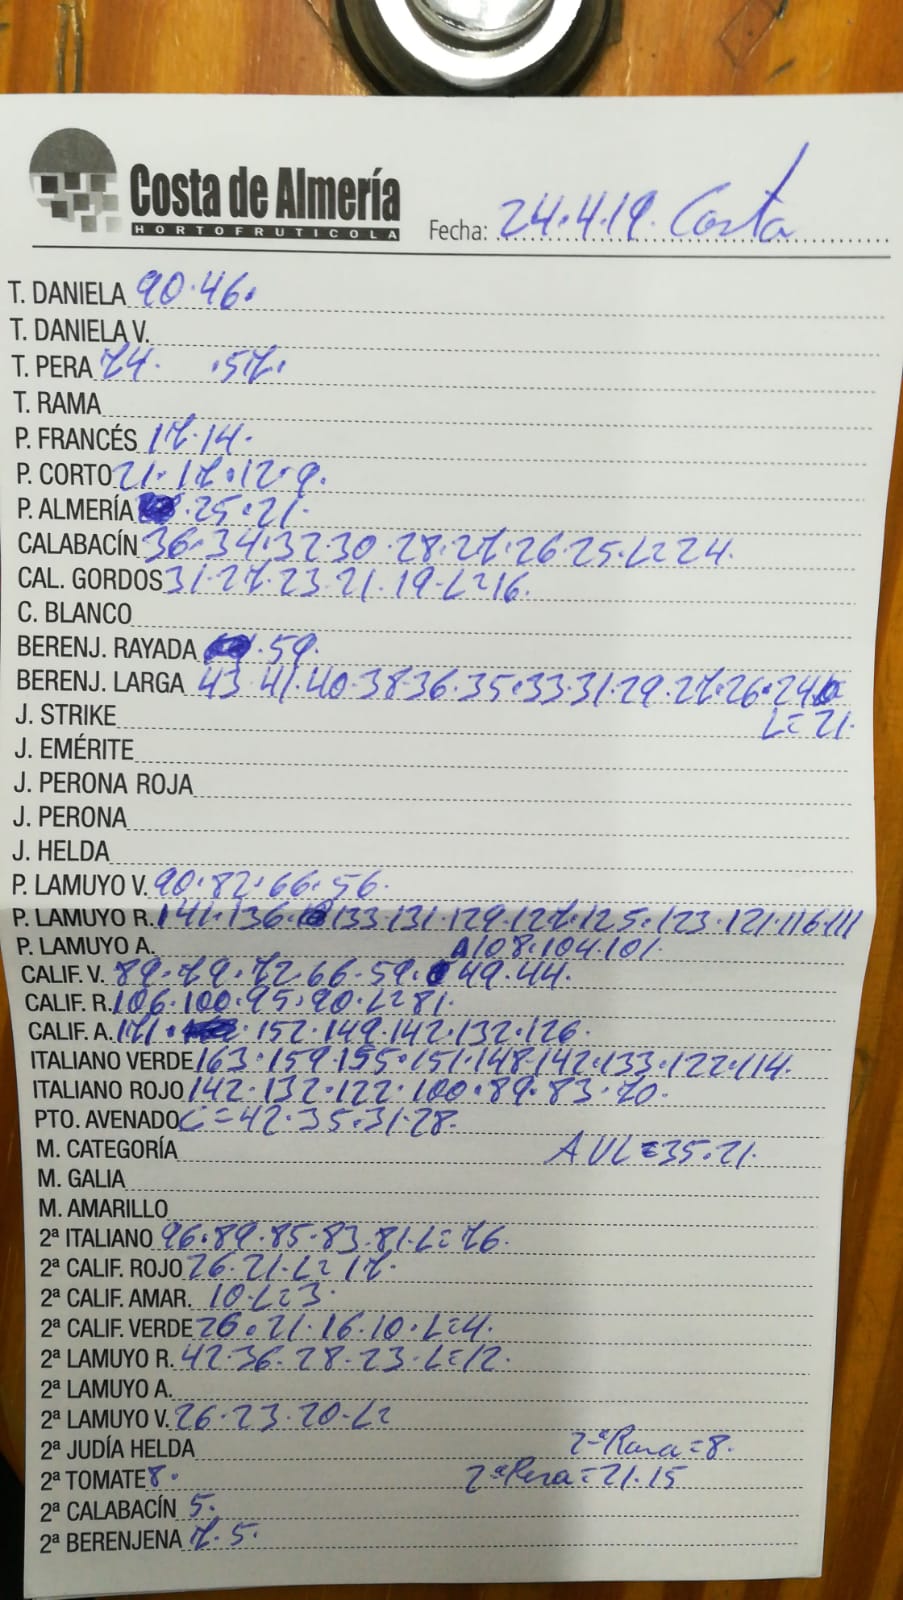 Costa de Almería
HORTOFRUTICOLA
Fecha: 24.4.19. Costa
T. DANIELA 90.46.
T. DANIELA V.
T. PERA 74. .57.
T. RAMA
P. FRANCÉS 17.14.
P. CORTO 21.17.12.9.
P. ALMERÍA .25.21.
CALABACÍN 36.34.32.30.28.27.26.25.L=24.
CAL. GORDOS 31.27.23.21.19.L=16.
C. BLANCO
BERENJ. RAYADA .59.
BERENJ. LARGA 43.41.40.38.36.35.33.31.29.27.26.24.
J. STRIKE L=21.
J. EMÉRITE
J. PERONA ROJA
J. PERONA
J. HELDA
P. LAMUYO V. 90.82.66.56.
P. LAMUYO R. 141.136.133.131.129.127.125.123.121.116.111
P. LAMUYO A. 108.104.101.
CALIF. V. 89.79.72.66.59.49.44.
CALIF. R. 106.100.95.90.L=81.
CALIF. A. 171. .152.149.142.132.126.
ITALIANO VERDE 163.159.155.151.148.142.133.122.114.
ITALIANO ROJO 142.132.122.100.89.83.70.
PTO. AVENADO C=42.35.31.28.
M. CATEGORÍA AVL=35.21.
M. GALIA
M. AMARILLO
2ª ITALIANO 96.89.85.83.81.L=76.
2ª CALIF. ROJO 26.21.L=17.
2ª CALIF. AMAR. 10.L=3.
2ª CALIF. VERDE 26.21.16.10.L=4.
2ª LAMUYO R. 42.36.28.23.L=12.
2ª LAMUYO A.
2ª LAMUYO V. 26.23.20.L=
2ª JUDÍA HELDA 2ª Rama=8.
2ª TOMATE 8. 2ª Pera=21.15
2ª CALABACÍN 5.
2ª BERENJENA 7.5.